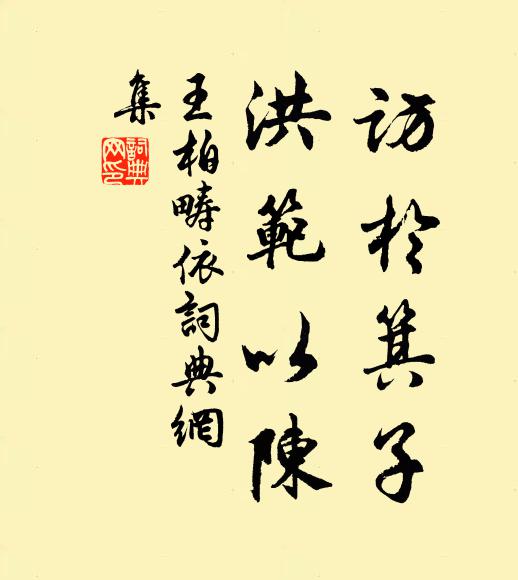 訪於箕子
洪範以陳
王柏疇依詞典網
集
詞典
网印